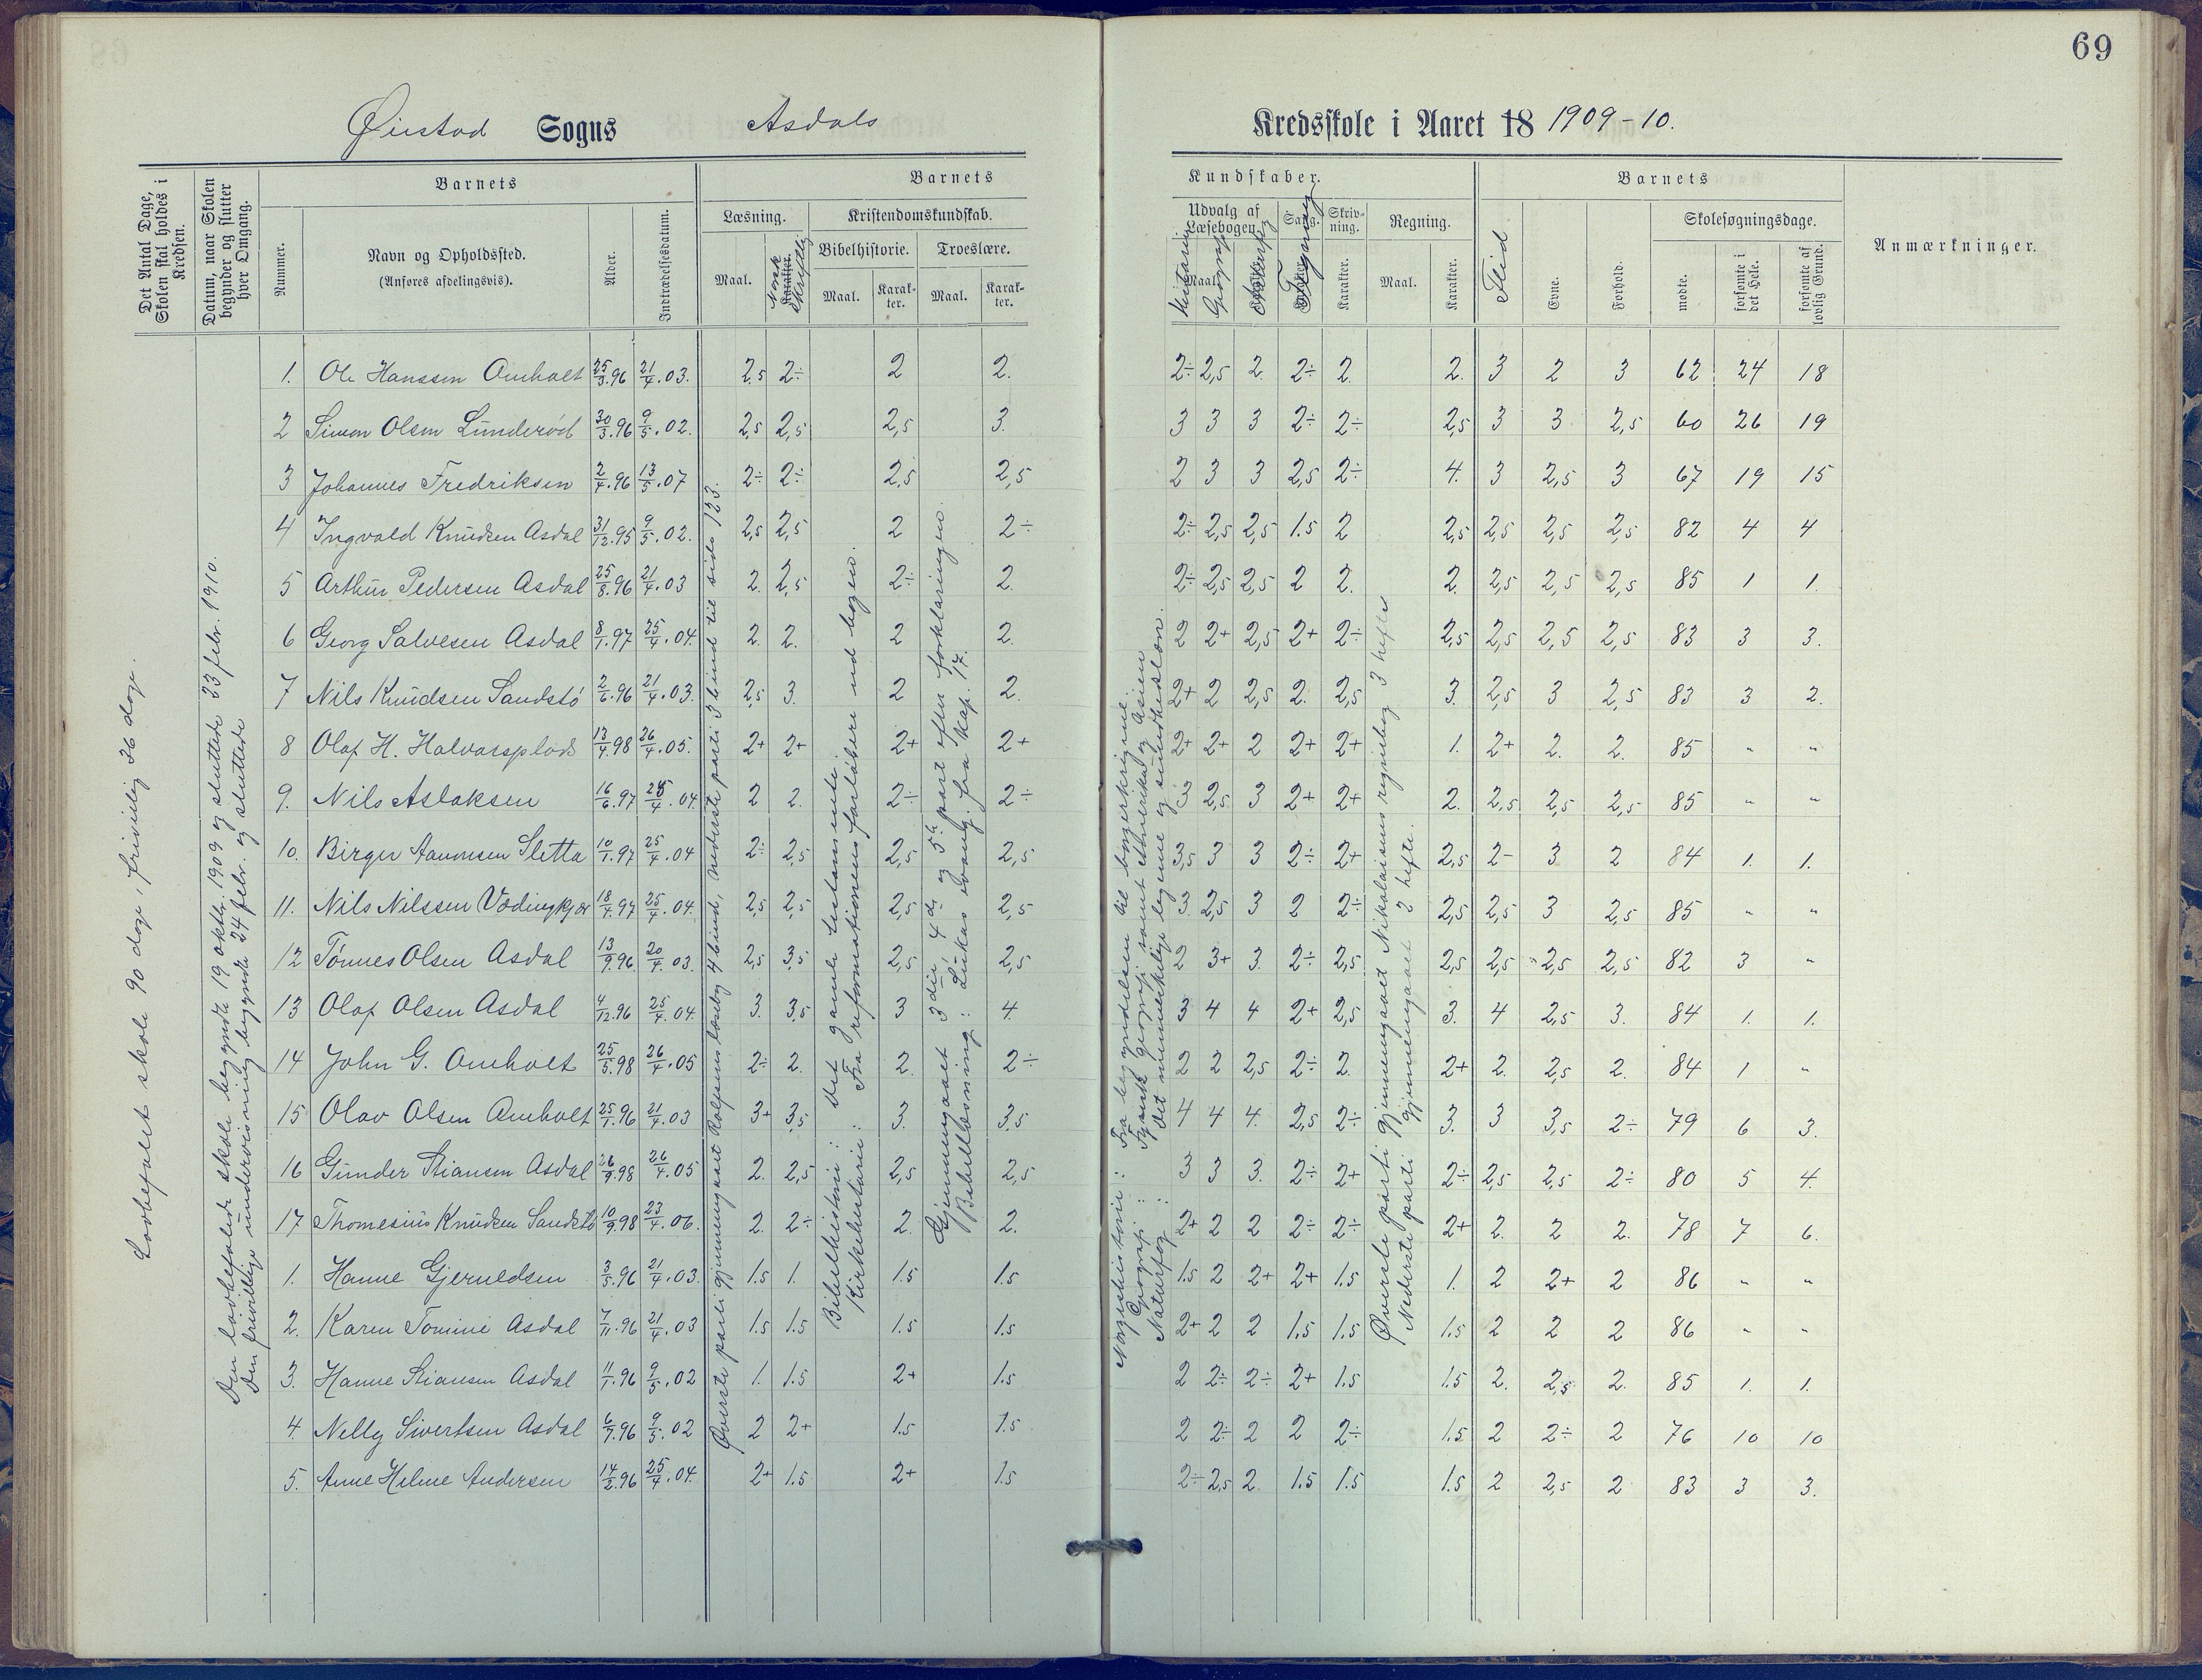 69
Øiestad Sogns Asdals
Kredsskole i Aaret 18 1909-10.
Det Antal Dage, Skolen skal holdes i Kredsen.
Datum, naar Skolen begynder og slutter hver Omgang.
Barnets
Nummer.
Navn og Opholdssted.
(Anføres afdelingsvis).
Alder.
Indtrædelsesdatum.
Barnets
Læsning.
Maal.
Norsk Skriftlig
Karakter.
Kristendomskundskab.
Bibelhistorie.
Maal.
Karakter.
Troeslære.
Maal.
Karakter.
Kundskaber.
Udvalg af Læsebogen.
Maal.
Historie
Geografi
Sang.
Tegning
Skrivning.
Karakter.
Regning.
Maal.
Karakter.
Barnets
Flid
Evne.
Forhold.
Skolesøgningsdage.
mødte.
forsømte i det Hele.
forsømte af lovlig Grund.
Anmærkninger.
Lovbefalet skole 90 dage, frivillig 36 dage.
Den lovbefalede skole begyndte 19 oktbr. 1909 og sluttede 23 febr. 1910.
Den frivillige undervisning begyndte 24 febr. og sluttede
Øverste parti gjennemgaaet Rolfsens læsebog 4 bind, nederste parti 3 bind til side 123.
Bibelhistorie: Det gamle testamente.
Kirkehistorie: Fra reformationens forløbere ud bogen.
Gjennemgaaet 3die, 4de og 5te part efter forklaringen.
Bibellæsning: Lukas evang. fra kap. 17.
Norgeshistorie: Fra begyndelsen til borgerkrigene.
Geografi: Fysisk geografi samt Amerika og Asien
Naturfag: Det menneskelige legeme og sundhedslæren.
Øverste parti gjennemgaaet Nikolaisens regnebog 3 hefte
Nederste parti gjennemgaaet 2 hefte.
1. Ole Hanssen Omholt 25/3.96 21/4.03. 2,5 2÷ 2 2. 2÷ 2,5 2. 2÷ 2. 2. 3 2 3 62 24 18
2 Simon Olsen Lunderød 30/3.96 9/5.02. 2,5 2,5 2,5 3. 3 3 3 2÷ 2÷ 2,5 3 3 2,5 60 26 19
3 Johannes Fredriksen 2/4.96 13/5.07 2÷ 2÷ 2,5 2,5 2 3 3 2,5 2÷ 4. 3 2,5 3 67 19 15
4 Ingvald Knudsen Asdal 31/12.95 9/5.02. 2,5 2,5 2 2÷ 2÷ 2,5 2,5 1.5 2 2,5 2,5 2,5 2,5 82 4 4
5 Arthur Pedersen Asdal 25/8.96 21/4.03 2. 2,5 2÷ 2. 2÷ 2,5 2,5 2 2. 2. 2,5 2,5 2,5 85 1 1.
6 Georg Salvesen Asdal 8/1.97 25/4.04. 2. 2. 2 2. 2 2+ 2,5 2+ 2÷ 2,5 2,5 2,5 2,5 83 3 3.
7 Nils Knudsen Sandstø 2/6.96 21/4.03. 2,5 3. 2 2. 2+ 2 2,5 2. 2,5 3. 2,5 3 2,5 83 3 2.
8 Olaf H. Halvorsplads 13/4.98 26/4.05. 2+ 2+ 2+ 2+ 2+ 2+ 2 2+ 2+ 1. 2+ 2. 2. 85 " "
9. Nils Aslaksen 16/6.97 25/4.04. 2 2. 2÷ 2÷ 3 2,5 3 2+ 2+ 2. 2,5 2,5 2,5 85 " "
10. Birger Aanonsen Sletta 10/1.97 25/4.04 2÷ 2,5 2,5 2,5 3,5 3 3 2÷ 2+ 2,5 2- 3 2 84 1. 1.
11. Nils Nilssen Vædingkjær 18/4.97 25/4.04. 2,5 2,5 2,5 2,5 3 2,5 3 2 2÷ 2,5 2,5 3 2,5 85 " "
12 Tønnes Olsen Asdal 13/9.96. 20/4.03. 2,5 3,5 2,5 2,5 2 3+ 3. 2÷ 2,5 2,5 2,5 2,5 2,5 82 3 "
13 Olaf Olsen Asdal 4/12.96 25/4.04. 3. 3,5 3 4. 3 4 4 2+ 2,5 3. 4 2,5 3. 84 1. 1.
14 John G. Omholt 25/5.98 26/4.05 2÷ 2. 2. 2÷ 2 2 2,5 2÷ 2. 2+ 2. 2,5 2. 84 1 "
15 Olav Olsen Omholt 25/1.96 21/4.03 3+ 3,5 3. 3,5 4 4 4. 2,5 2÷ 3. 3 3,5 2÷ 79 6 3.
16 Gunder Stiansen Asdal 26/9.98 26/4.05 2. 2,5 2,5 2,5 3 3 3. 2÷ 2+ 2÷ 2,5 2,5 2÷ 80 5 4.
17 Thomesius Knudsen Sandstø 10/9.98 23/4.06. 2. 2÷ 2. 2. 2+ 2 2 2÷ 2÷ 2+ 2. 2 2. 78 7 6.
1. Hanne Gjeruldsen 3/5.96 21/4.03. 1.5 1. 1.5 1.5 1.5 2 2+ 2+ 1.5 1. 2 2+ 2 86 " "
2. Karen Tomine Asdal 7/11.96 21/4.03 1.5 1.5 1.5 1.5 2+ 2 2 1.5 1.5 1.5 2 2 2 86 " "
3. Hanne Stiansen Asdal 11/1.96 9/5.02 1. 1.5 2+ 1.5 2 2÷ 2÷ 2+ 1.5 1.5 2. 2,5 2. 85 1. 1.
4. Nelly Sivertsen Asdal 6/7.96 9/5.02 2 2+ 1.5 1.5 2 2÷ 2 2 2÷ 1.5 2 2÷ 2 76 10 10
5. Anne Helene Andersen 14/2.96 25/4.04. 2+ 1.5 2+ 1.5 2÷ 2,5 2. 1.5 1.5 1.5 2 2,5 2 83 3 3.